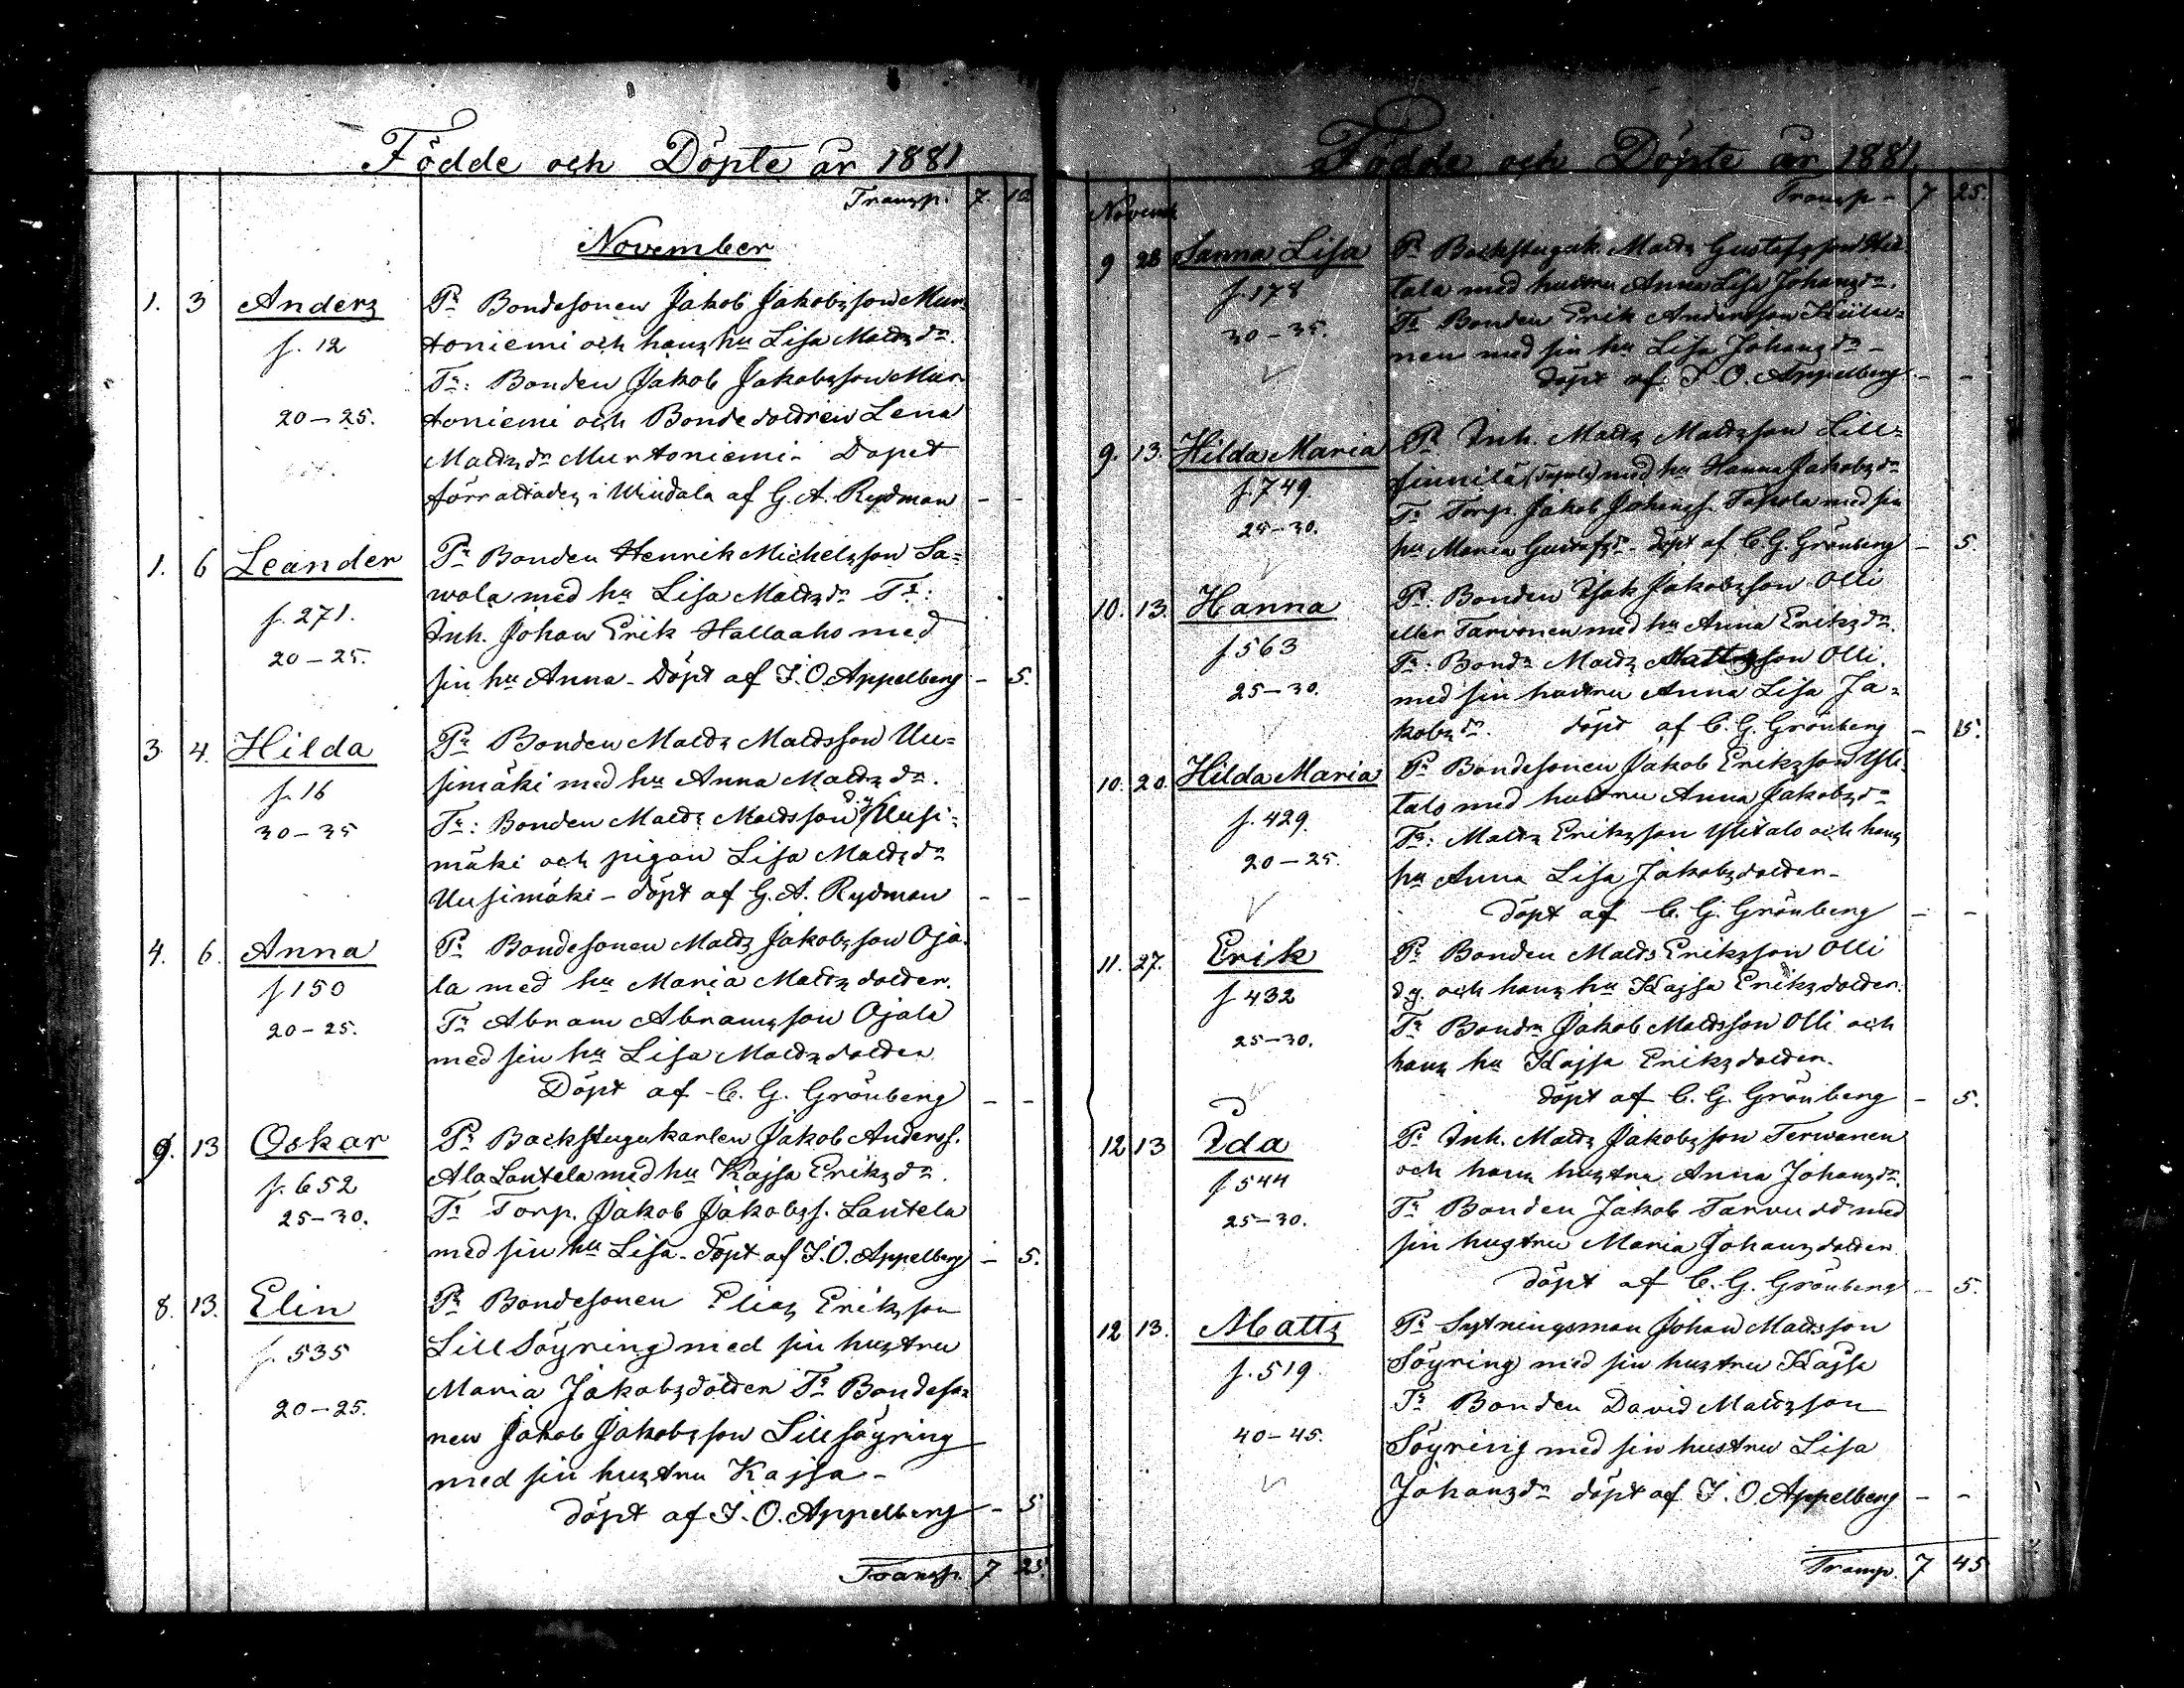 Födde och Döpte år 1881
Transp. 7 10
November
1. 3 Anders Pr Bondesonen Jakob Jakobsson Mur-
f. 12 toniemi och hans hu Lisa Mattsdr.
Tr: Bonden Jakob Jakobsson Mur-
20-25. toniemi och Bondedottren Lena
Mattsdr Murtoniemi - Dopet
förrättades i Windala af G. A. Rydman - -
1. 6 Leander Pr Bonden Henrik Michelsson Sa-
f. 271. wola med hu Lisa Mattsdr Tr:
20-25. Inh. Johan Erik Hallaaho med
sin hu Anna - Döpt af J. O. Appelberg - 5.
3. 4. Hilda Pr Bonden Matts Mattsson Uu-
f. 16 simäki med hu Anna Mattsdr.
30-35 Tr: Bonden Matts Mattsson d.y. Uusi-
mäki och pigan Lisa Mattsdr
Uusimäki - döpt af G. A. Rydman - -
4. 6. Anna Pr Bondesonen Matts Jakobsson Oja-
f 150 la med hu Maria Mattsdotter.
20-25. Tr Abram Abramsson Ojala
med sin hu Lisa Mattsdotter
Döpt af C. G. Grönberg - -
9. 13 Oskar Pr Backstugukarlen Jakob Anderss.
f. 652 Ala Lantela med hu Kajsa Eriksdr.
25-30. Tr Torp. Jakob Jakobss. Lantela
med sin hu Lisa - döpt af J. O. Appelberg - 5.
8. 13. Elin Pr Bondesonen Elias Eriksson
f. 535 Lill Söyring med sin hustru
20-25. Maria Jakobsdotter Tr Bondeso-
nen Jakob Jakobsson Lillsöyring
med sin hustru Kajsa -
döpt af J. O. Appelberg - 5
Transp. 7 25.
Födde och Döpte år 1881.
Transp - 7 25.
Novemb.
9 28 Sanna Lisa Pr Backstuguk. Matts Gustafsson Hie-
f. 178 tala med hustru Anna Lisa Johansdr.
30-35. Tr Bonden Erik Andersson Kiilu-
nen med sin hu Lisa Johansdr -
döpt af J. O. Appelberg - -
9. 13. Hilda Maria Pr Inh. Matts Mattsson Lill-
f. 749. finnilä med hu Hanna Jakobsdr
25-30. Tr Torp. Jakob Johanss. med sin
hu Maria Gustafsdr - döpt af C. G. Grönberg - 5.
10. 13. Hanna Pr. Bonden Isak Jakobsson Olli
f 563 eller Tarvonen med hu Anna Eriksdr.
25-30. Tr. Bondn Matts Mattsson Olli.
med sin hustru Anna Lisa Ja-
kobsdr. döpt af C. G. Grönberg - 15.
10. 20. Hilda Maria Pr Bondesonen Jakob Eriksson Yli-
f. 429. talo med hustru Anna Jakobsdr
20-25. Tr: Matts Eriksson Ylitalo och hans
hu Anna Lisa Jakobsdotter -
döpt af C. G. Grönberg - -
11. 27. Erik Pr Bonden Matts Eriksson Olli
f 432 d.y. och hans hu Kajsa Eriksdotter.
25-30. Tr Bondn Jakob Mattsson Olli och
hans hu Kajsa Eriksdotter.
döpt af C. G. Grönberg - 5.
12 13 Ida Pr Inh. Matts Jakobsson Terwonen
f. 544 och hans hustru Anna Johansdr.
25-30. Tr Bonden Jakob med
sin hustru Maria Johansdotter
döpt af C. G. Grönberg - 5.
12 13. Matts Pr Sytningsman Johan Mattsson
f. 519. Söyring med sin hustru Kajsa
Tr Bonden David Mattsson
40-45. Söyring med sin hustru Lisa
Johansdr döpt af J. O. Appelberg - -
Transp. 7 45